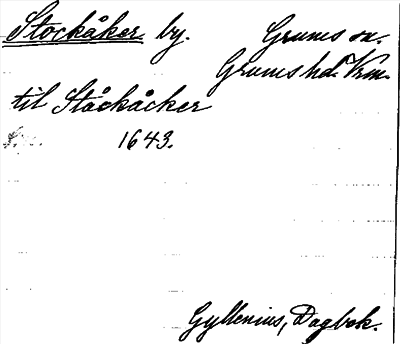 Stockåker by. Grums sn.
Grums hd. Vrm.
til Ståckåcker
1643.
Gyllenius, Dagbok.